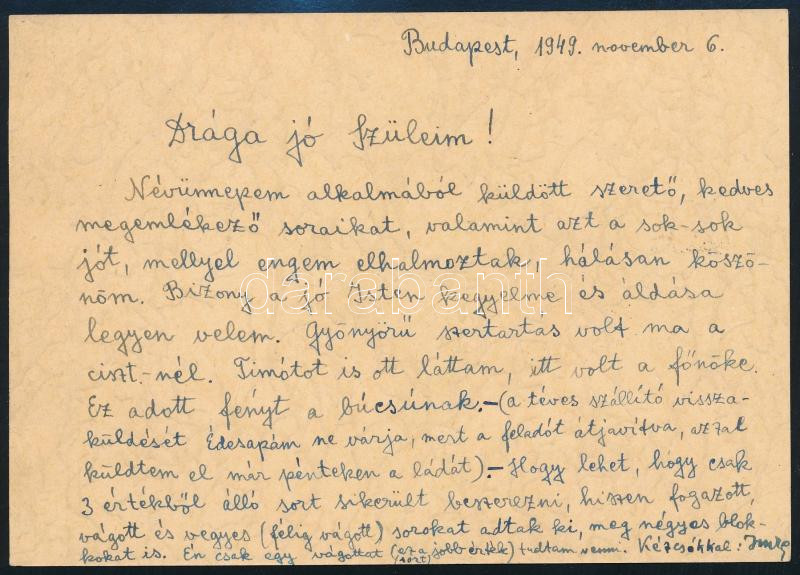 Budapest, 1949. november 6.
Drága jó Szüleim!
Névünnepem alkalmából küldött szerető, kedves
megemlékező soraikat, valamint azt a sok-sok
jót, mellyel engem elhalmoztak, hálásan köszö-
nöm. Bizony a jó Isten kegyelme és áldása
darabanth
legyen velem. Gyönyörű szertartas volt ma a
ciszt.-nél. Timótot is ott láttam, itt volt a főnöke.
Ez adott fényt a búcsúnak.-(a téves szállító vissza-
küldését Édesapám ne várja, mert a feladót átjavítva, azzal
küldtem el már pénteken a ládát).-Hogy lehet, hogy csak
3 értékből álló sort sikerült beszerezni, hiszen fogazott,
vágott és vegyes (félig vágott) sorokat adtak ki, meg négyes blok-
kokat is. Én csak egy vágottat (ez a jobb érték) tudtam venni. Kézcsókkal: Imre
(sort)